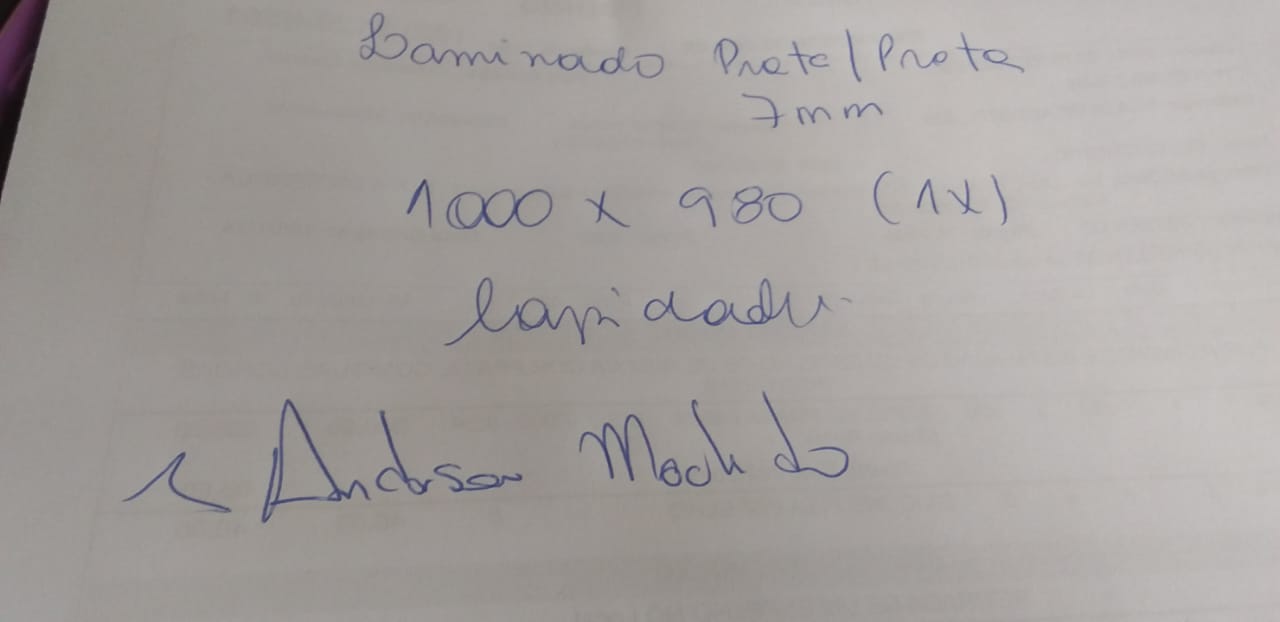 Laminado Prata/Prata
7mm
1000 x 980 (1x)
lapidado
Anderson Machado